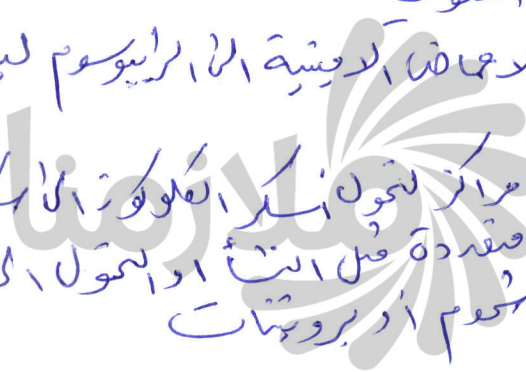 الاحماض الامينية الى الرايبوسوم
مراكز لتحول سكر الكلوكوز الى
متعددة مثل النشأ او التحول
شحوم او بروتينات
ملازمنا